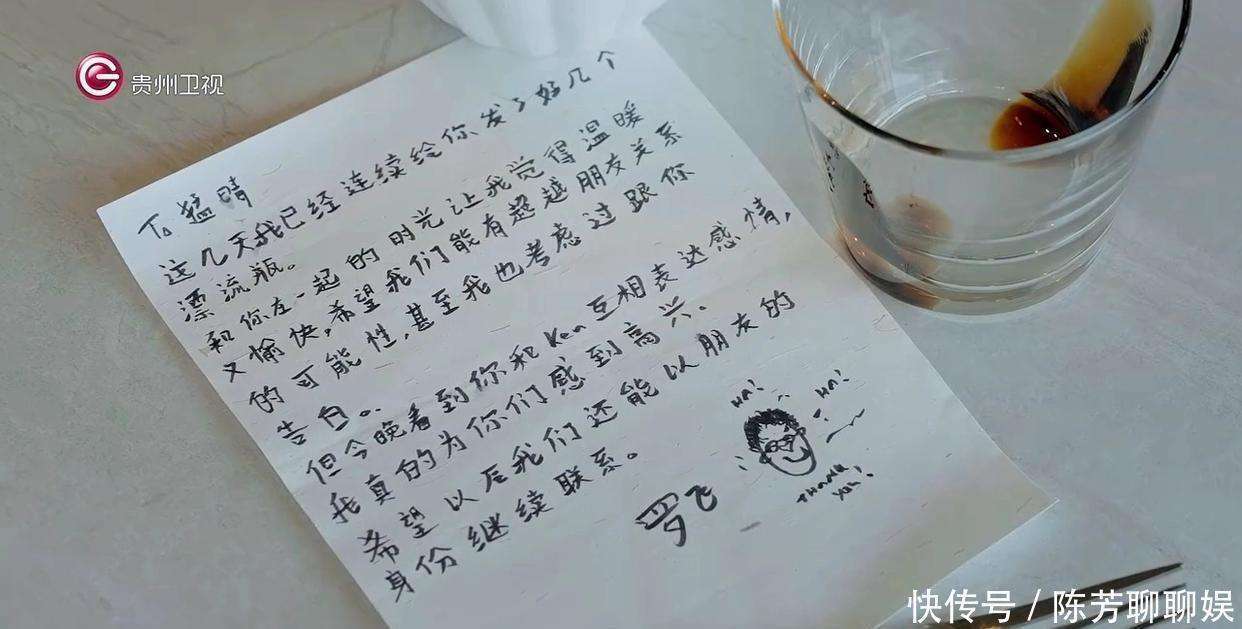 贵州卫视
To 猛晴
这几天我已经连续给你发了好几个
漂流瓶。
和你在一起的时光让我觉得温暖
又愉快,希望我们能有超越朋友关系
的可能性,甚至我也考虑过跟你
告白。
但今晚看到你和Ken互相表达感情,
我真的为你们感到高兴、
希望以后我们还能以朋友的
身份继续联系。
罗飞
HA!
HA!
THANK
YOU!
快传号/陈芳聊聊娱